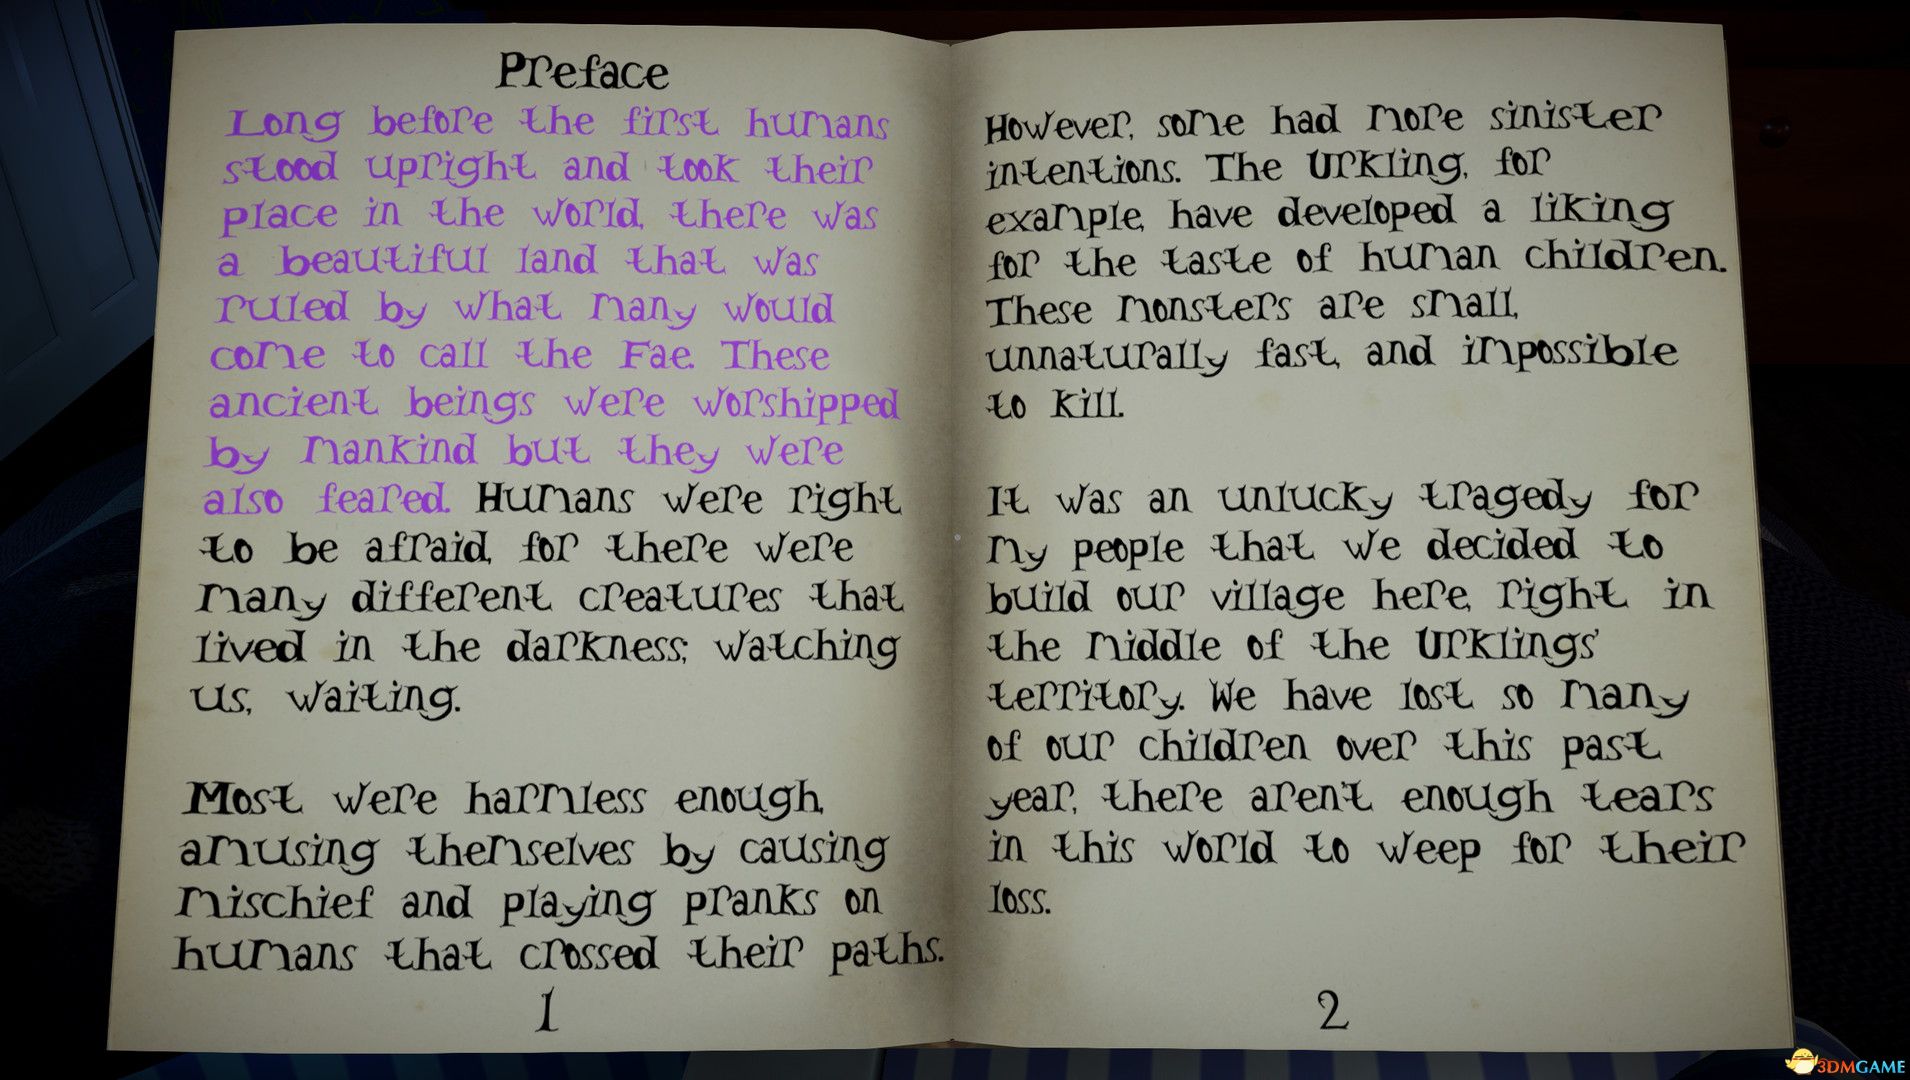 Preface
Long before the first humans
stood upright and took their
place in the world, there was
a beautiful land that was
ruled by what many would
come to call the Fae. These
ancient beings were worshipped
by mankind but they were
also feared. Humans were right
to be afraid, for there were
many different creatures that
lived in the darkness; watching
us, waiting.
Most were harmless enough,
amusing themselves by causing
mischief and playing pranks on
humans that crossed their paths.
1
However, some had more sinister
intentions. The Urkling, for
example, have developed a liking
for the taste of human children.
These monsters are small,
unnaturally fast, and impossible
to kill.
It was an unlucky tragedy for
my people that we decided to
build our village here, right in
the middle of the Urklings'
territory. We have lost so many
of our children over this past
year, there aren't enough tears
in this world to weep for their
loss.
2
3DMGAME